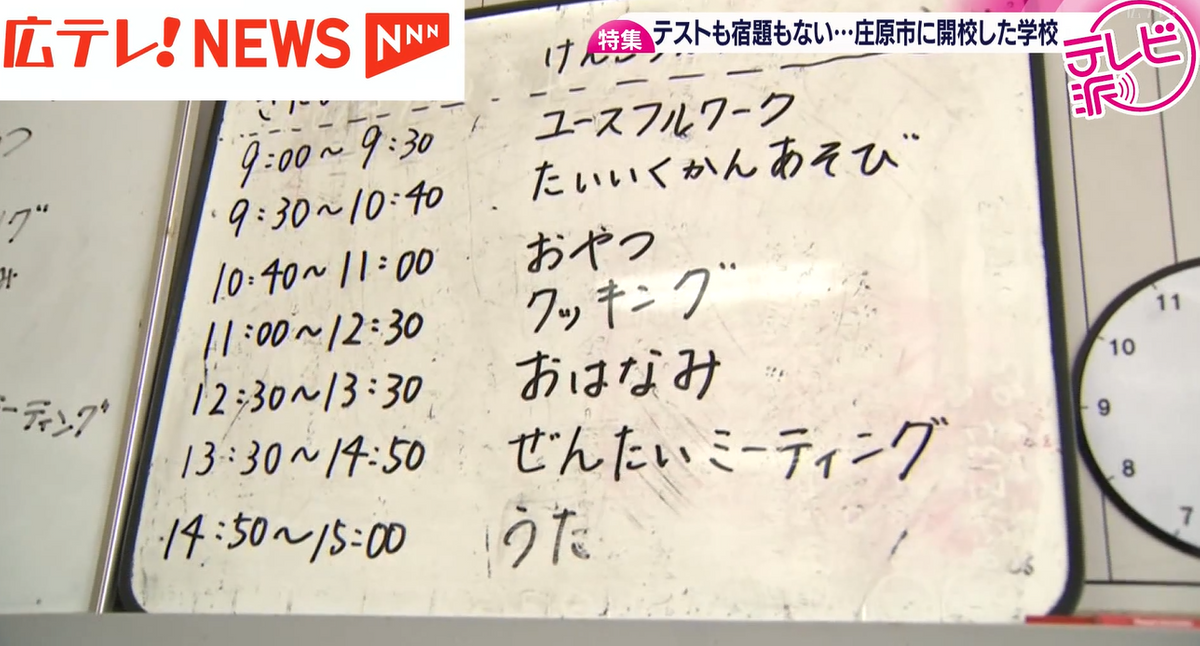 広テレ!NEWS NNN
特集 テストも宿題もない…庄原市に開校した学校
テレビ派
9:00〜9:30 ユースフルワーク
9:30〜10:40 たいいくかんあそび
10:40〜11:00 おやつ
11:00〜12:30 クッキング
12:30〜13:30 おはなみ
13:30〜14:50 ぜんたいミーティング
14:50〜15:00 うた
ーティング
11
10
9
8
7